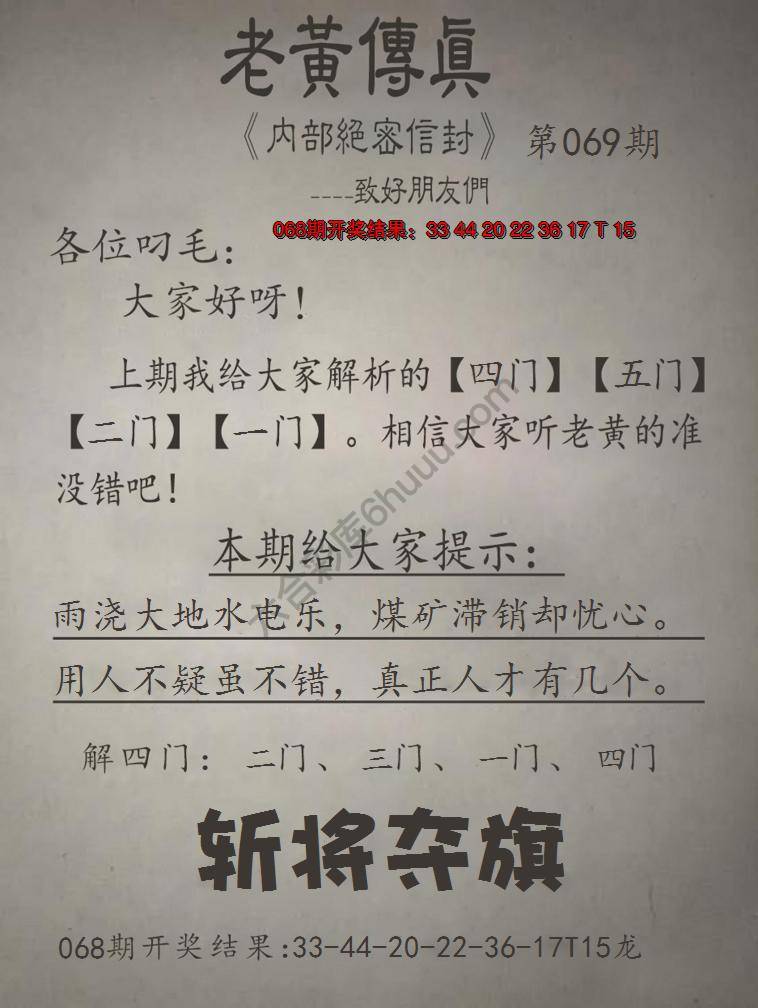 老黃傳真
《内部絕密信封》 第069期
----致好朋友們
068期开奖结果：33 44 20 22 36 17 T 15
各位叼毛：
大家好呀！
上期我给大家解析的【四门】【五门】
【二门】【一门】。相信大家听老黄的准
没错吧！
本期给大家提示：
雨浇大地水电乐，煤矿滞销却忧心。
用人不疑虽不错，真正人才有几个。
解四门： 二门、 三门、 一门、 四门
斩将夺旗
068期开奖结果:33-44-20-22-36-17T15龙
六合彩库6huuu.com